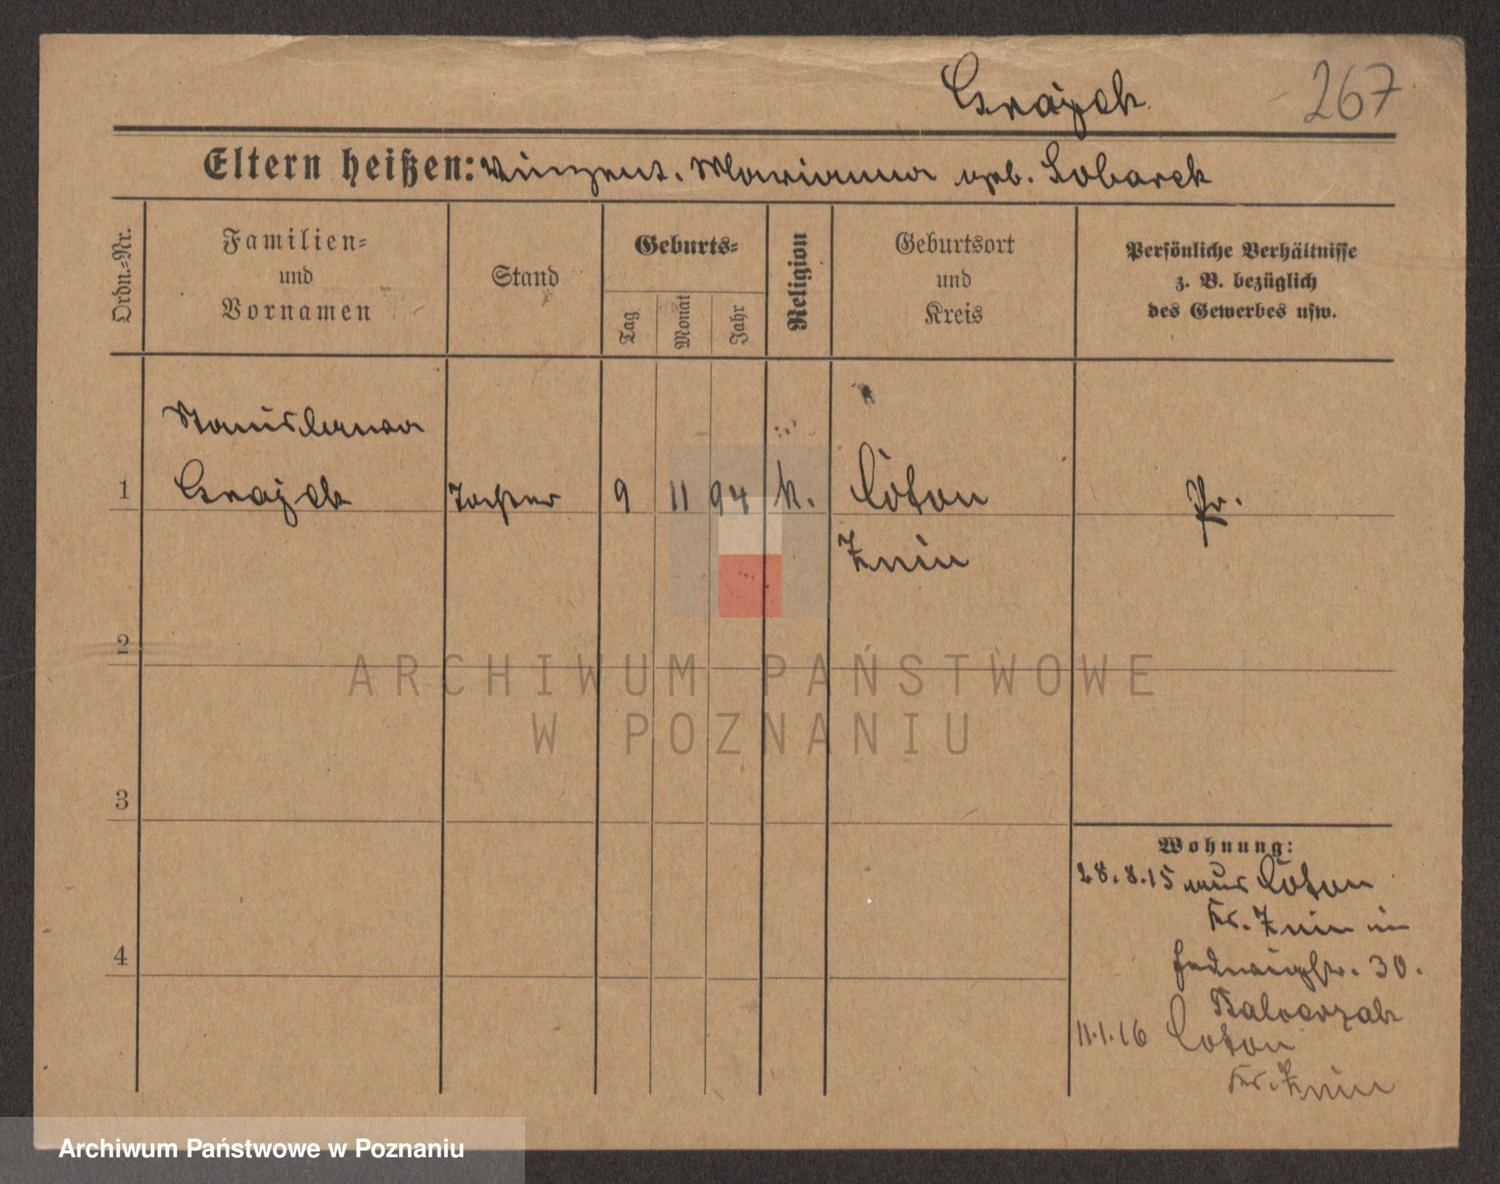 Grajek 267
Eltern heißen: Vinzent. Marianna geb. Sobarek
Ordn.-Nr.
Familien-
und
Vornamen
Stand
Geburts-
Tag
Monat
Jahr
Religion
Geburtsort
und
Kreis
Persönliche Verhältnisse
z. B. bezüglich
des Gewerbes usw.
Stanislawa
1 Grajek Tochter 9 11 94 k. Coton Pr.
Znin
2
3
4
Wohnung:
28.8.15 aus Coton
Kr. Znin in
Hedwigstr. 30.
11.1.16 Coton
Kr. Znin
ARCHIWUM PAŃSTWOWE
W POZNANIU
Archiwum Państwowe w Poznaniu